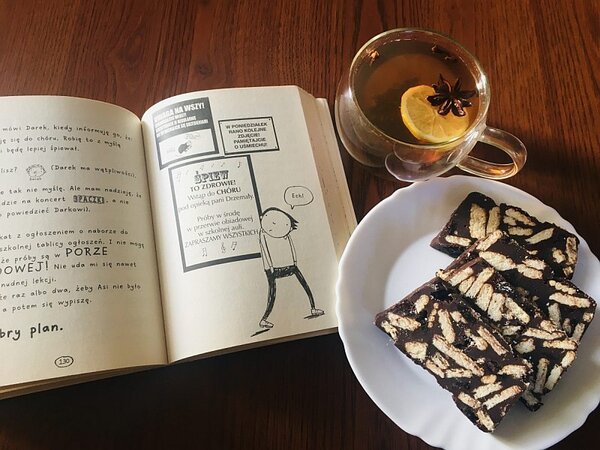 mówi Darek, kiedy informuję go, że
się do chóru. Robię to z myślą
będę lepiej śpiewał.
(Darek ma wątpliwości.)
tak nie myślę. Ale mam nadzieję, że
dzie na koncert SPACZKI, a nie
powiedzieć Darkowi).
kat z ogłoszeniem o naborze do
szkolnej tablicy ogłoszeń. I nie mogę
że próby są w PORZE
DOWEJ! Nie uda mi się nawet
nudnej lekcji.
raz albo dwa, żeby Asi nie było
a potem się wypiszę.
bry plan.
130
UWAGA NA WSZY!
W PONIEDZIAŁEK
RANO KOLEJNE
ZDJĘCIE!
PAMIĘTAJCIE
O UŚMIECHU!
ŚPIEW
TO ZDROWIE!
Wstąp do CHÓRU
pod opieką pani Drzemały
Próby w środę
w przerwie obiadowej
w szkolnej auli.
ZAPRASZAMY WSZYSTKICH
Eeh!